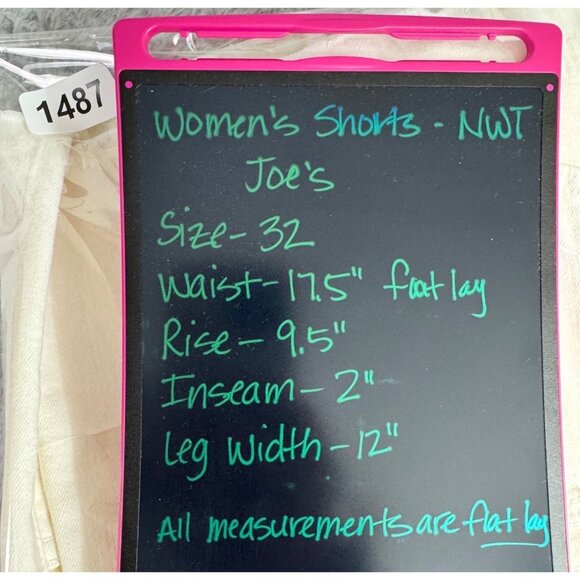 1487
Women's Shorts - NWT
Joe's
Size - 32
Waist - 17.5" flat lay
Rise - 9.5"
Inseam - 2"
Leg Width - 12"
All measurements are flat lay